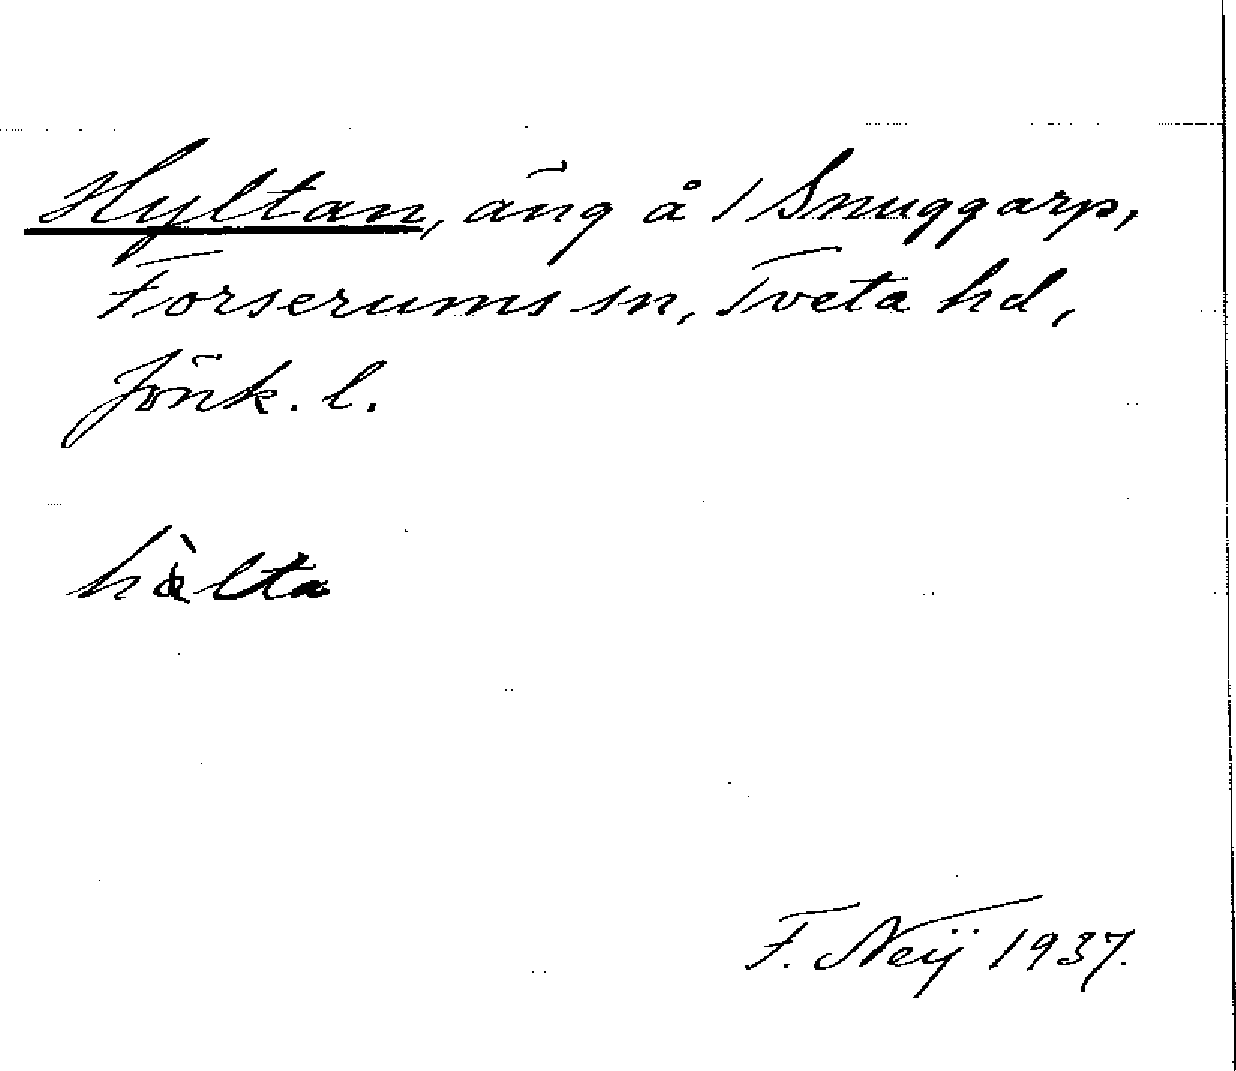 Hyltan, äng å 1 Snuggarp,
Forserums sn, Tveta hd,
Jönk. l.
hàlta
F. Neij 1937.